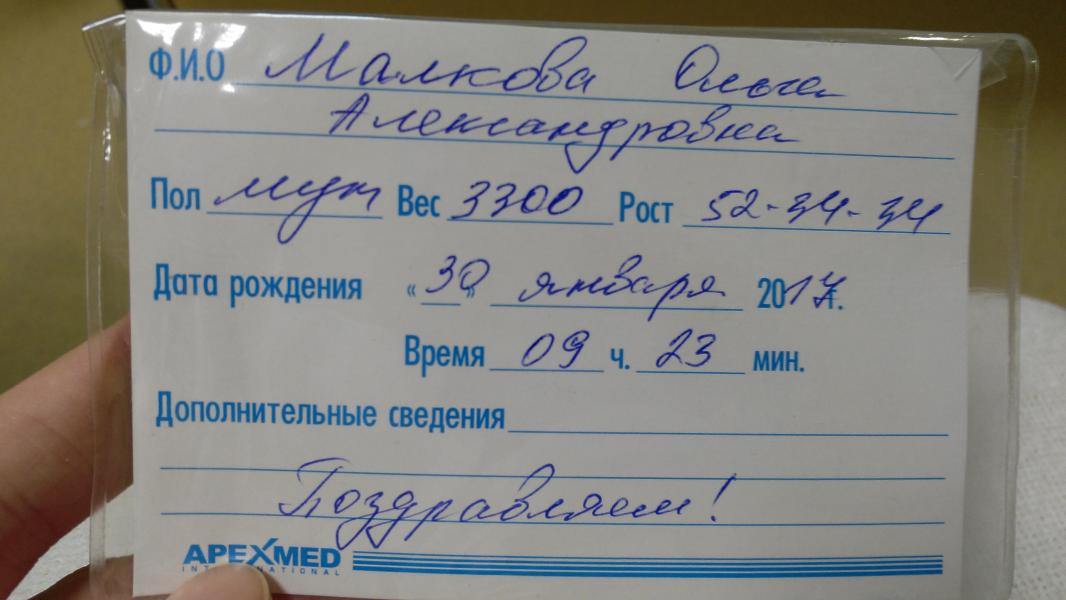 Ф.И.О Малкова Ольга
Александровна
Пол муж Вес 3300 Рост 52-34-34
Дата рождения «30» января 2017г.
Время 09 ч. 23 мин.
Дополнительные сведения
Поздравляем!
APEXMED
INTERNATIONAL